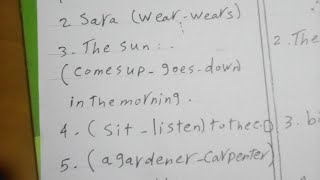 2 Sara (wear-wears)
3- The sun :-
(comes up - goes - down
in the morning .
4. (sit - listen) to the CD
5. (a gardener - carpenter)
2. The
3. bi